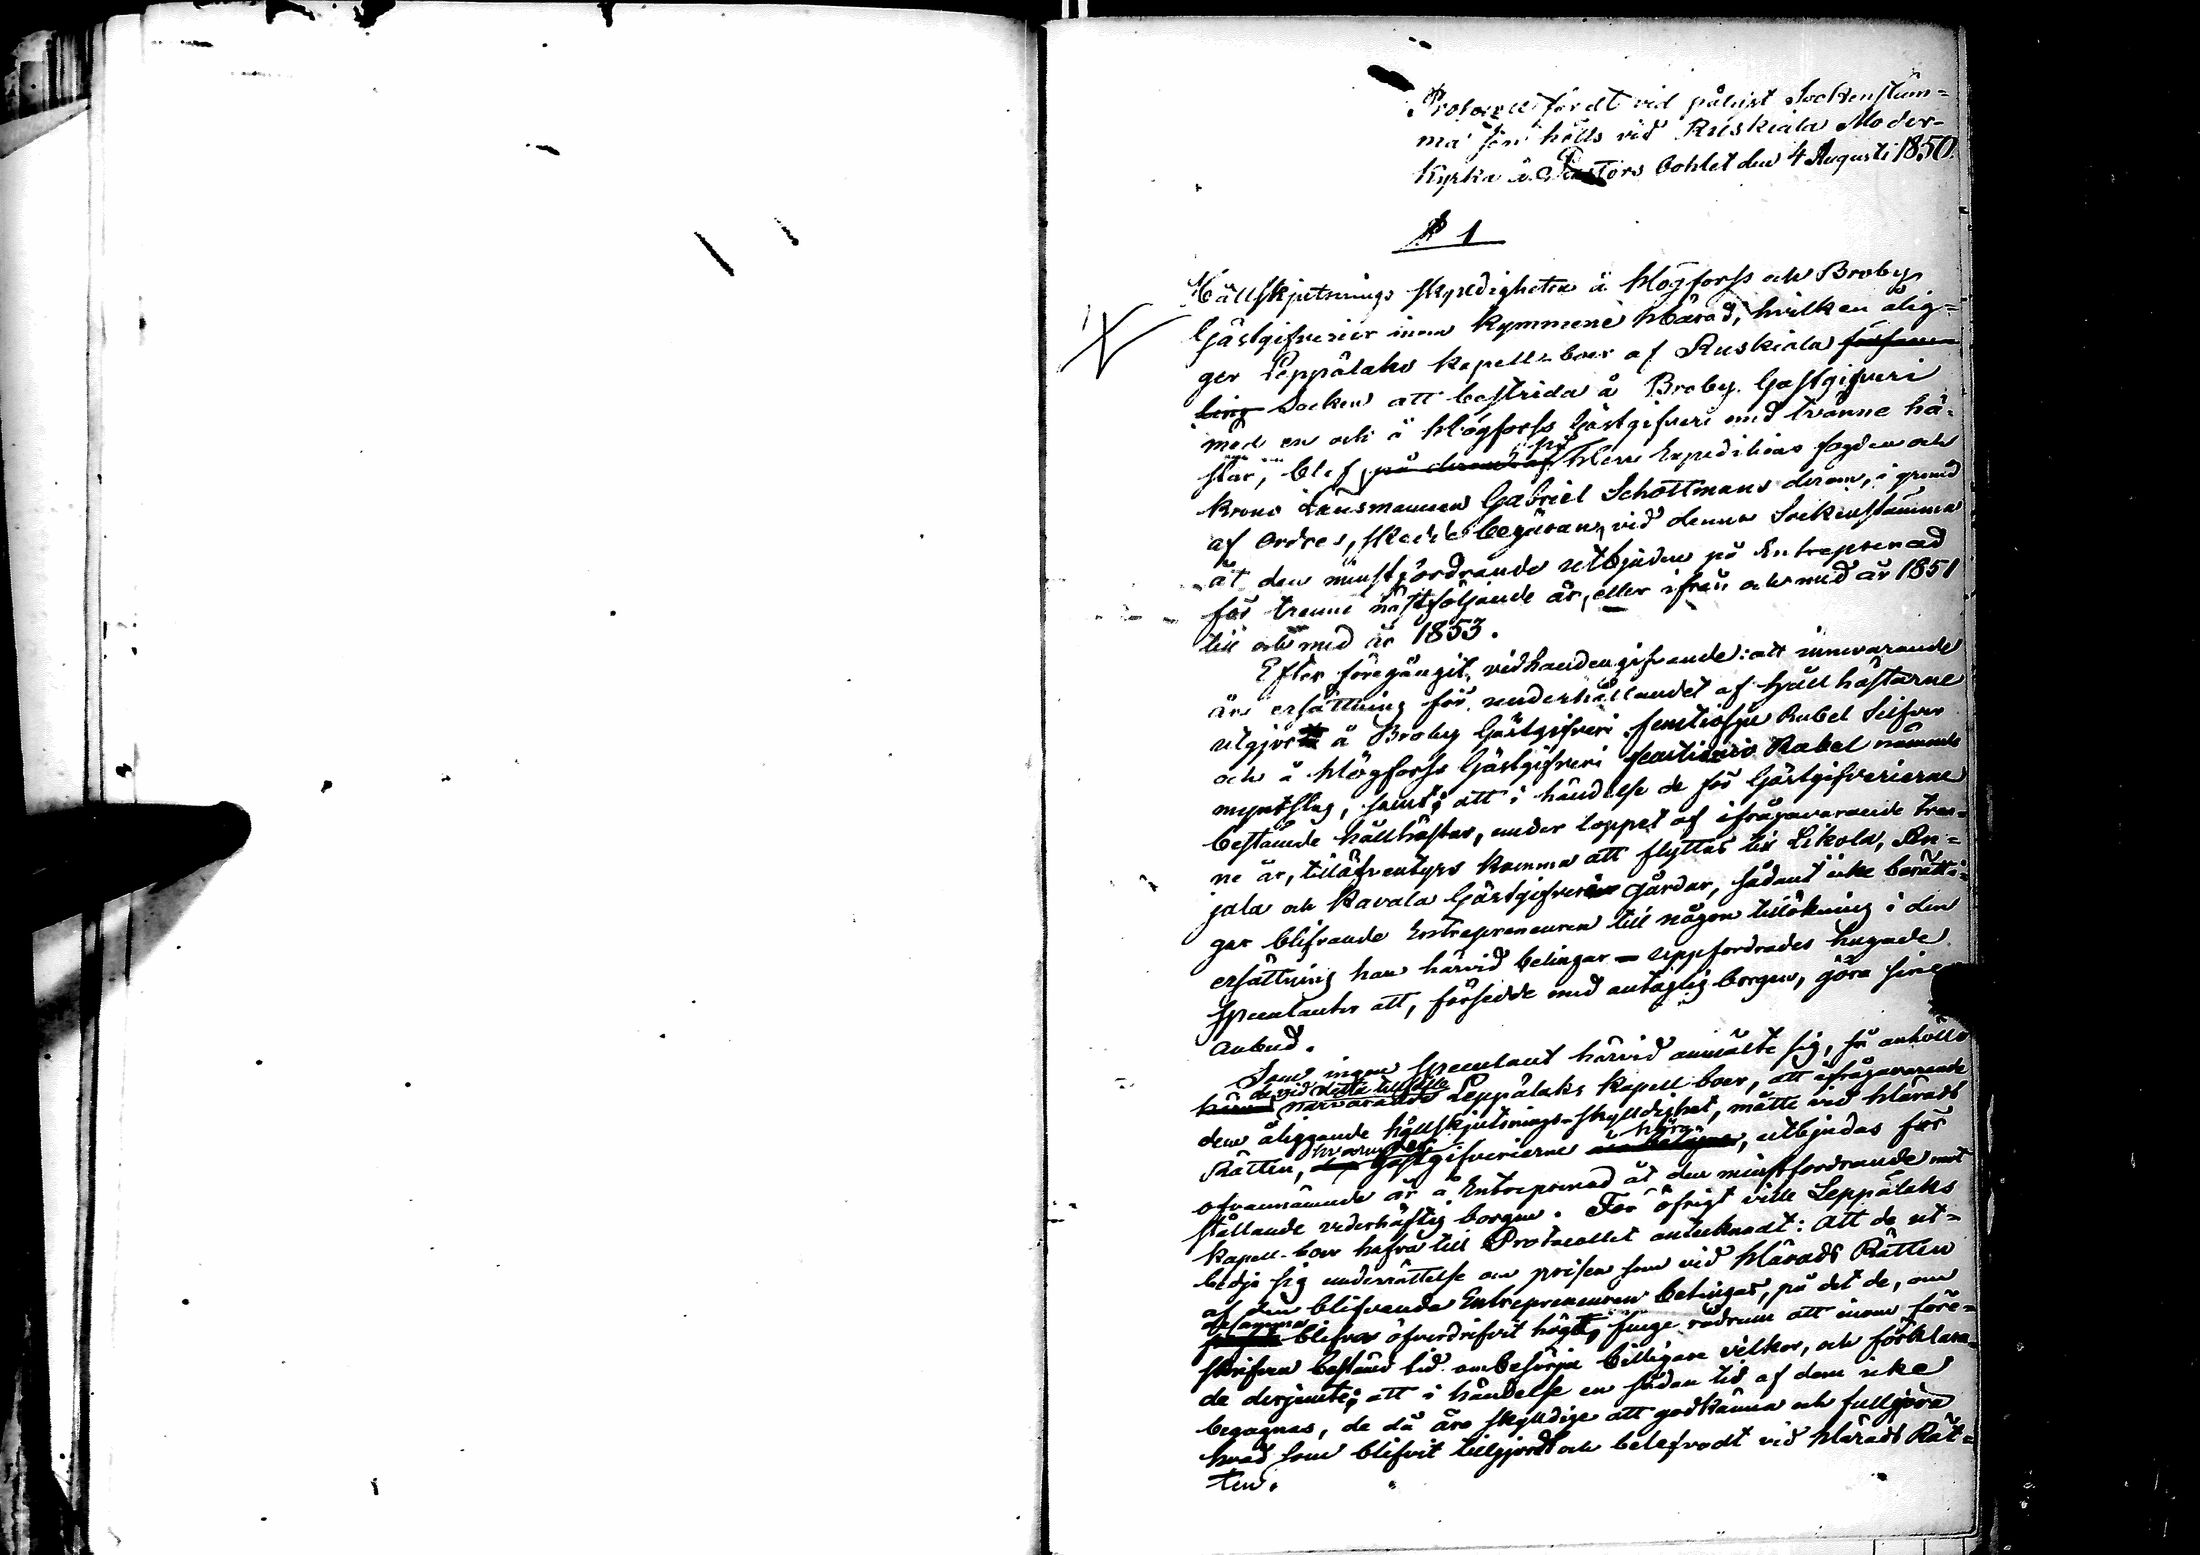 Protocoll fördt vid pålyst Sockenstäm=
ma som hölls vid Ruskiala Moder-
kyrka å Pastors Bohlet den 4 Augusti 1850.
§ 1
Hållskjutsnings skyldigheten å Högforss och Broby
Gästgifverier inom Kymmene Härad, hvilken ålig=
ger Leppälaks Kapell-boer af Ruskiala församm
ling Socken att bestrida å Broby Gästgifveri
med en och å Högforss Gästgifveri med tvänne hä-
star, blef, på Herr Expeditions fogden och
Krono Länsmannen Gabriel Schottmans derom, i grund
af Ordres, skedde begäran, vid denna Sockenstämma
åt den minstfordrande utbjuden på Entreprenad
för trenne nästföljande år, eller ifrån och med år 1851
till och med år 1853.
Efter föregånget vidhandengifvande: att innevarande
års ersättning för underhållandet af hållhästarne
utgjort å Broby Gästgifveri femtiosju Rubel Silfver
och å Högforss Gästgifveri Rubel nämnde
myntslag, samt, att i händelse de för Gästgifverierne
bestämde hållhästar, under loppet af ifrågavarande tren-
ne år, tilläfventyrs komma att flyttas till Likola, An=
jala och Kavala Gästgifveri gårdar, sådant icke berätti=
gar blifvande Entrepreneuren till någon tillökning i den
ersättning han härvid betingar — uppfordrades hugade
speculanter att, försedde med antaglig borgen, göra sine
anbud.
Som ingen speculant härvid anmälte sig, så anhöllo
de vid detta tillfälle
närvarande Leppälaks Kapell boer, att ifrågavarande
dem åliggande hållskjutsnings-skylldighet, måtte vid Härads
Rätten, hvarunder Gästgifverierne höra, utbjudas för
ofvannämnde år å Entreprenad åt den minstfordrande mot
ställande vederhäftig borgen. För öfrigt ville Leppälaks
Kapell-boer hafva till Protocollet antecknadt: att de ut=
bedja sig underrättelse om prisen som vid Härads Rätten
af den blifvande Entrepreneuren betingas, på det de, om
desamma blifva öfverdrifvit högt, finge rådrum att inom före=
skrifven bestämd tid ombesörja billigare vilkor, och förklara=
de derjemte; att i händelse en sådan tid af dem icke
begagnas, de då äro skyldige att godkänna och fullgöra
hvad som blifvit tillgjordt och belefvadt vid Härads Rät=
ten.